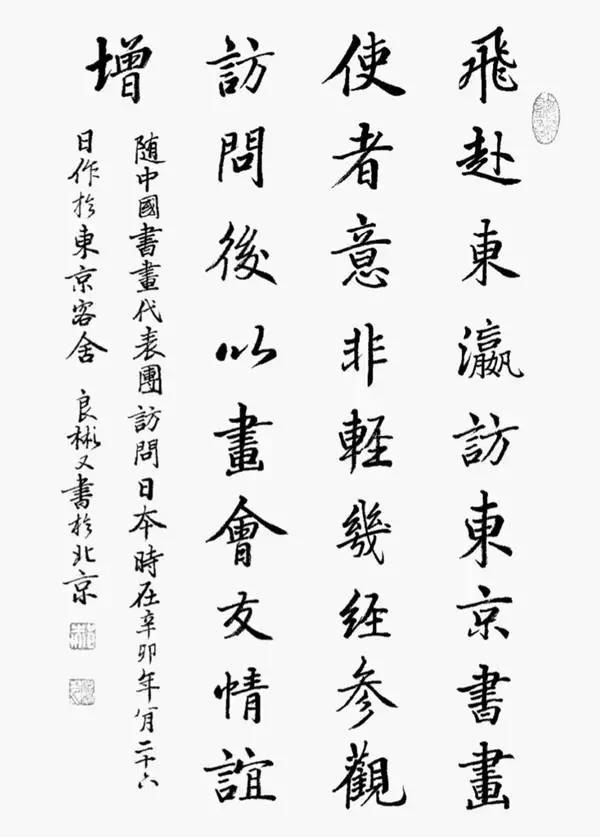 飛赴東瀛訪東京書畫
使者意非軽幾经参觀
訪問後以畫會友情誼
增
随中國書畫代表團訪問日本時在辛卯年八月二十六
日作於東京容舍 良彬又書於北京